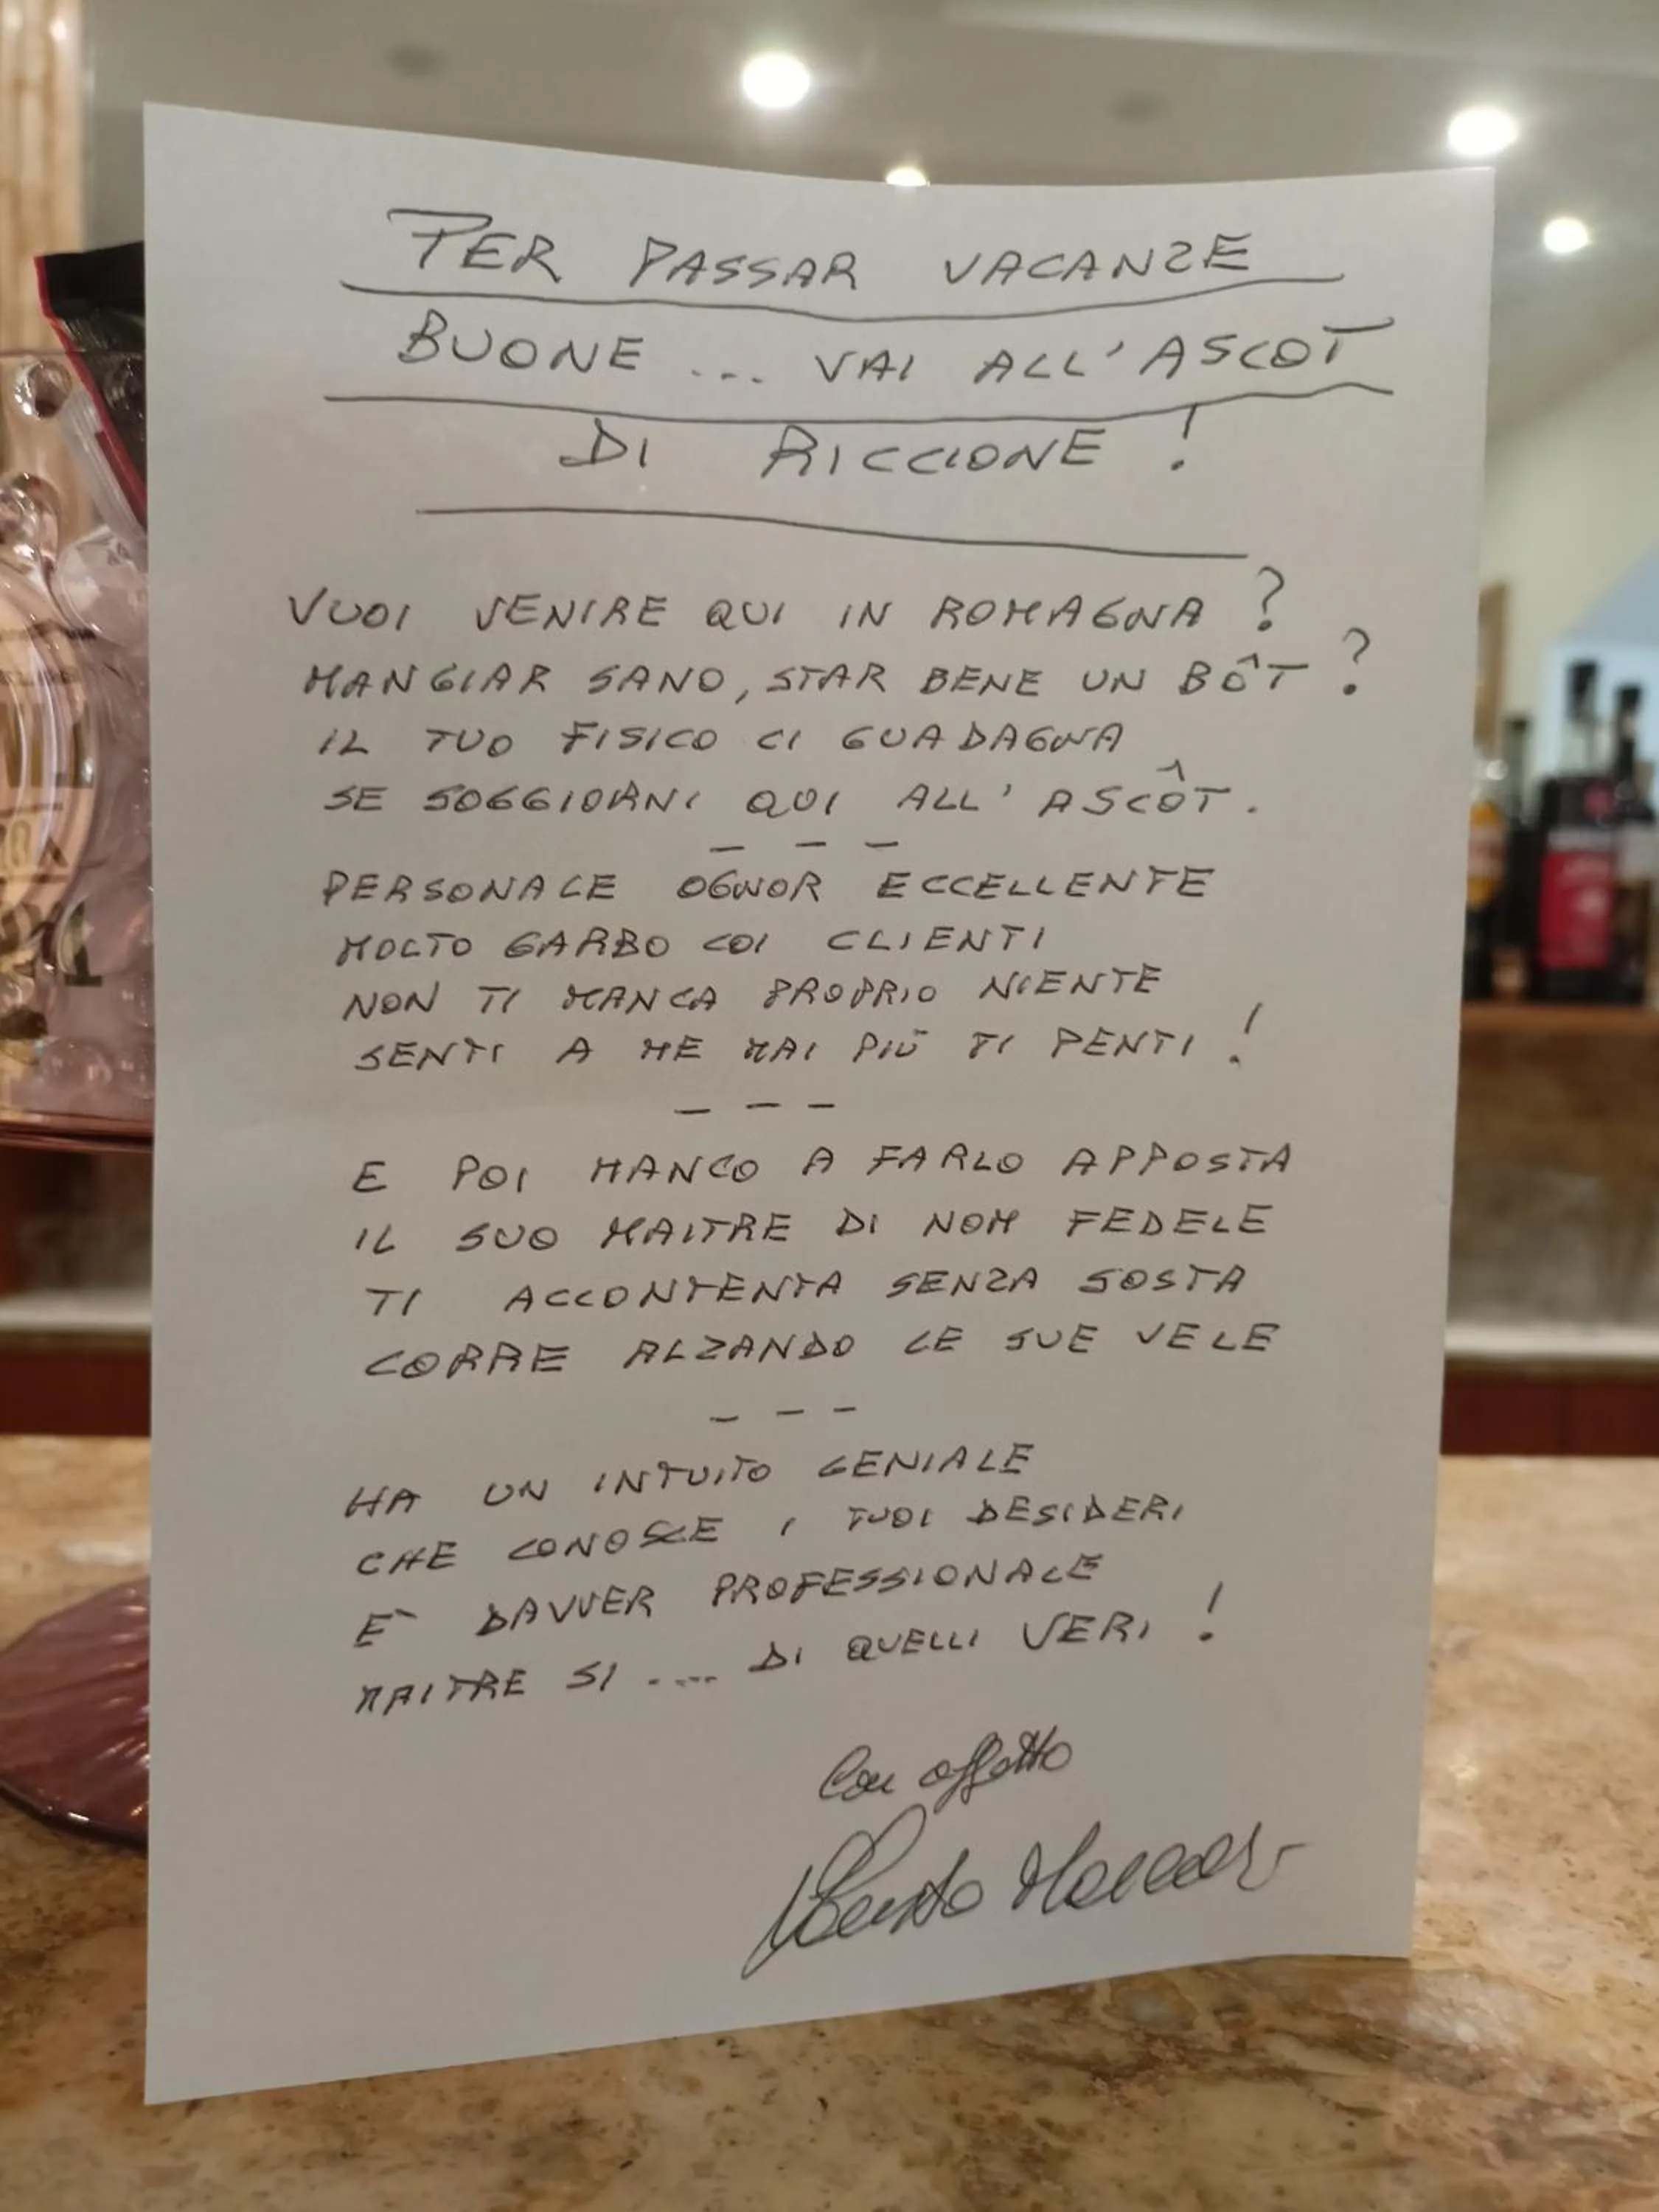 PER PASSAR VACANZE
BUONE ... VAI ALL'ASCOT
DI RICCIONE !
VUOI VENIRE QUI IN ROMAGNA ?
MANGIAR SANO, STAR BENE UN BÔT ?
IL TUO FISICO CI GUADAGNA
SE SOGGIORNI QUI ALL'ASCÔT.
- - -
PERSONALE OGNOR ECCELLENTE
MOLTO GARBO COI CLIENTI
NON TI MANCA PROPRIO NIENTE
SENTI A ME MAI PIÙ TI PENTI !
- - -
E POI MANCO A FARLO APPOSTA
IL SUO MAITRE DI NOM FEDELE
TI ACCONTENTA SENZA SOSTA
CORRE ALZANDO LE SUE VELE
- - -
HA UN INTUITO GENIALE
CHE CONOSCE I TUOI DESIDERI
E` DAVVER PROFESSIONALE
MAITRE SI .... DI QUELLI VERI !
Con affetto